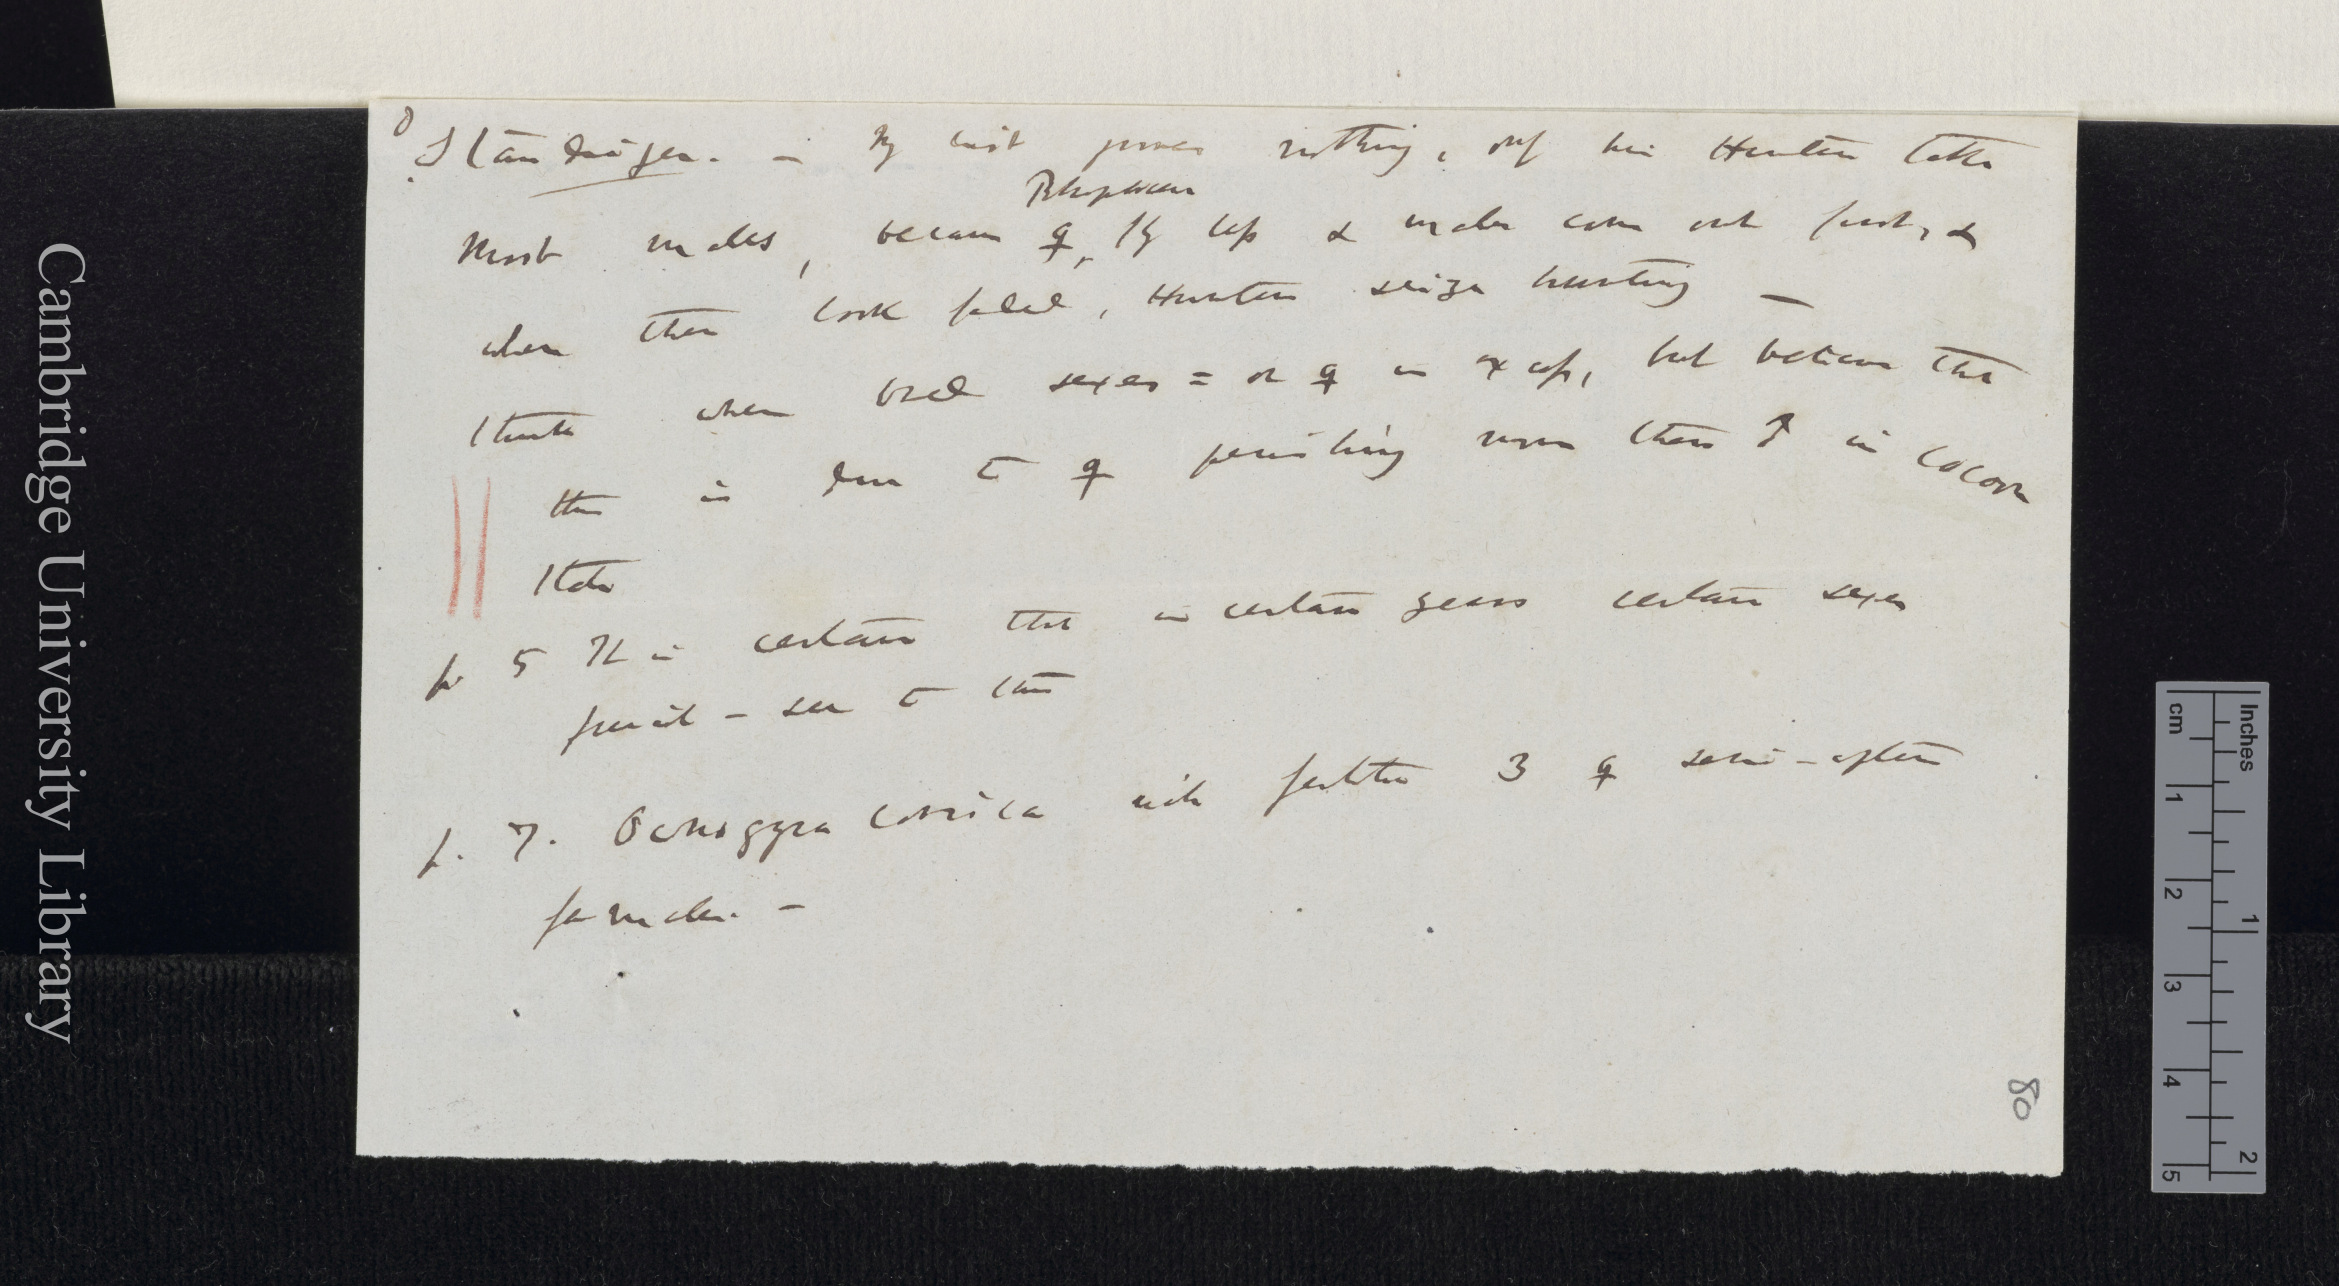 Staudinger. — My list proves nothing, only his Hunters take
Rhopalocera
most males, because ♀ fly less & males come out first, &
when these look faded, Hunters seize hunting —
Thinks when bred sexes = or ♀ in excess, but believes that
this is due to ♀ perishing more than ♂ in cocoon
State
p. 5 It is certain that in certain years certain sexes
perish — see to this
p. 7. Ocnogyna corsica with 3 ♀ semi-apterous
females. —
80
Cambridge University Library
Inches
cm
1
2
3
4
5
1
2